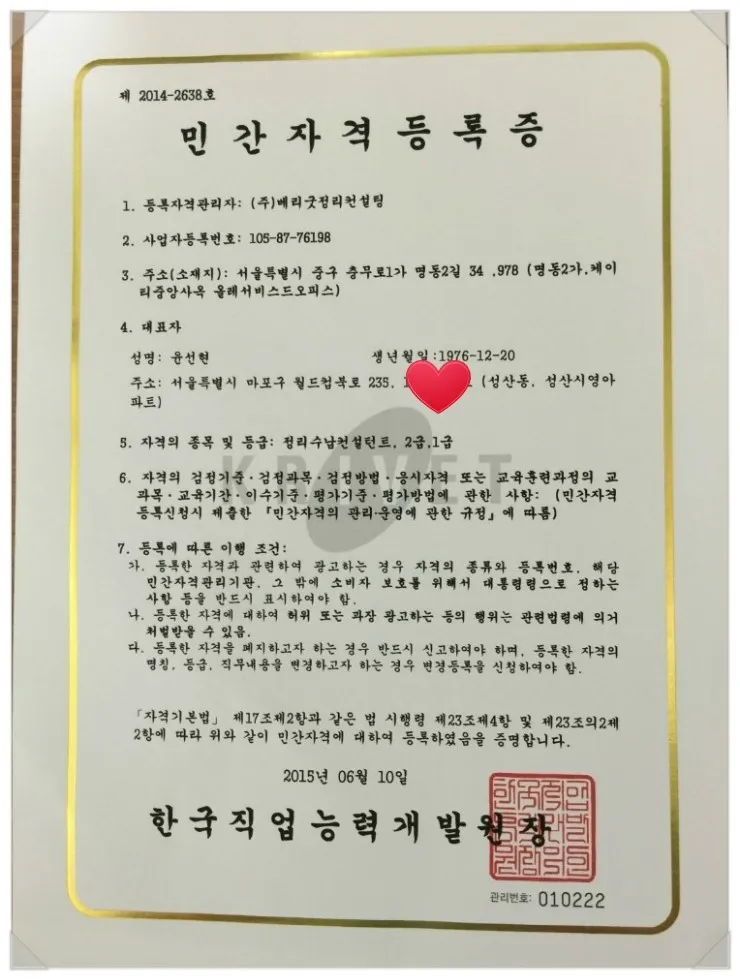 제 2014-2638호
민간자격등록증
1. 등록자격관리자: (주)베리굿정리컨설팅
2. 사업자등록번호: 105-87-76198
3. 주소(소재지): 서울특별시 중구 충무로1가 명동2길 34 ,978 (명동2가,케이
티중앙사옥 올레서비스드오피스)
4. 대표자
성명: 윤선현 생년월일:1976-12-20
주소: 서울특별시 마포구 월드컵북로 235, (성산동, 성산시영아
파트)
5. 자격의 종목 및 등급: 정리수납컨설턴트, 2급,1급
KRIVET
6. 자격의 검정기준·검정과목·검정방법·응시자격 또는 교육훈련과정의 교
과목·교육기간·이수기준·평가기준·평가방법에 관한 사항: (민간자격
등록신청시 제출한 『민간자격의 관리·운영에 관한 규정』에 따름)
7. 등록에 따른 이행 조건:
가. 등록한 자격과 관련하여 광고하는 경우 자격의 종류와 등록번호, 해당
민간자격관리기관, 그 밖에 소비자 보호를 위해서 대통령령으로 정하는
사항 등을 반드시 표시하여야 함.
나. 등록한 자격에 대하여 허위 또는 과장 광고하는 등의 행위는 관련법령에 의거
처벌받을 수 있음.
다. 등록한 자격을 폐지하고자 하는 경우 반드시 신고하여야 하며, 등록한 자격의
명칭, 등급, 직무내용을 변경하고자 하는 경우 변경등록을 신청하여야 함.
「자격기본법」 제17조제2항과 같은 법 시행령 제23조제4항 및 제23조의2제
2항에 따라 위와 같이 민간자격에 대하여 등록하였음을 증명합니다.
2015년 06월 10일
한국직업능력개발원장
관리번호: 010222